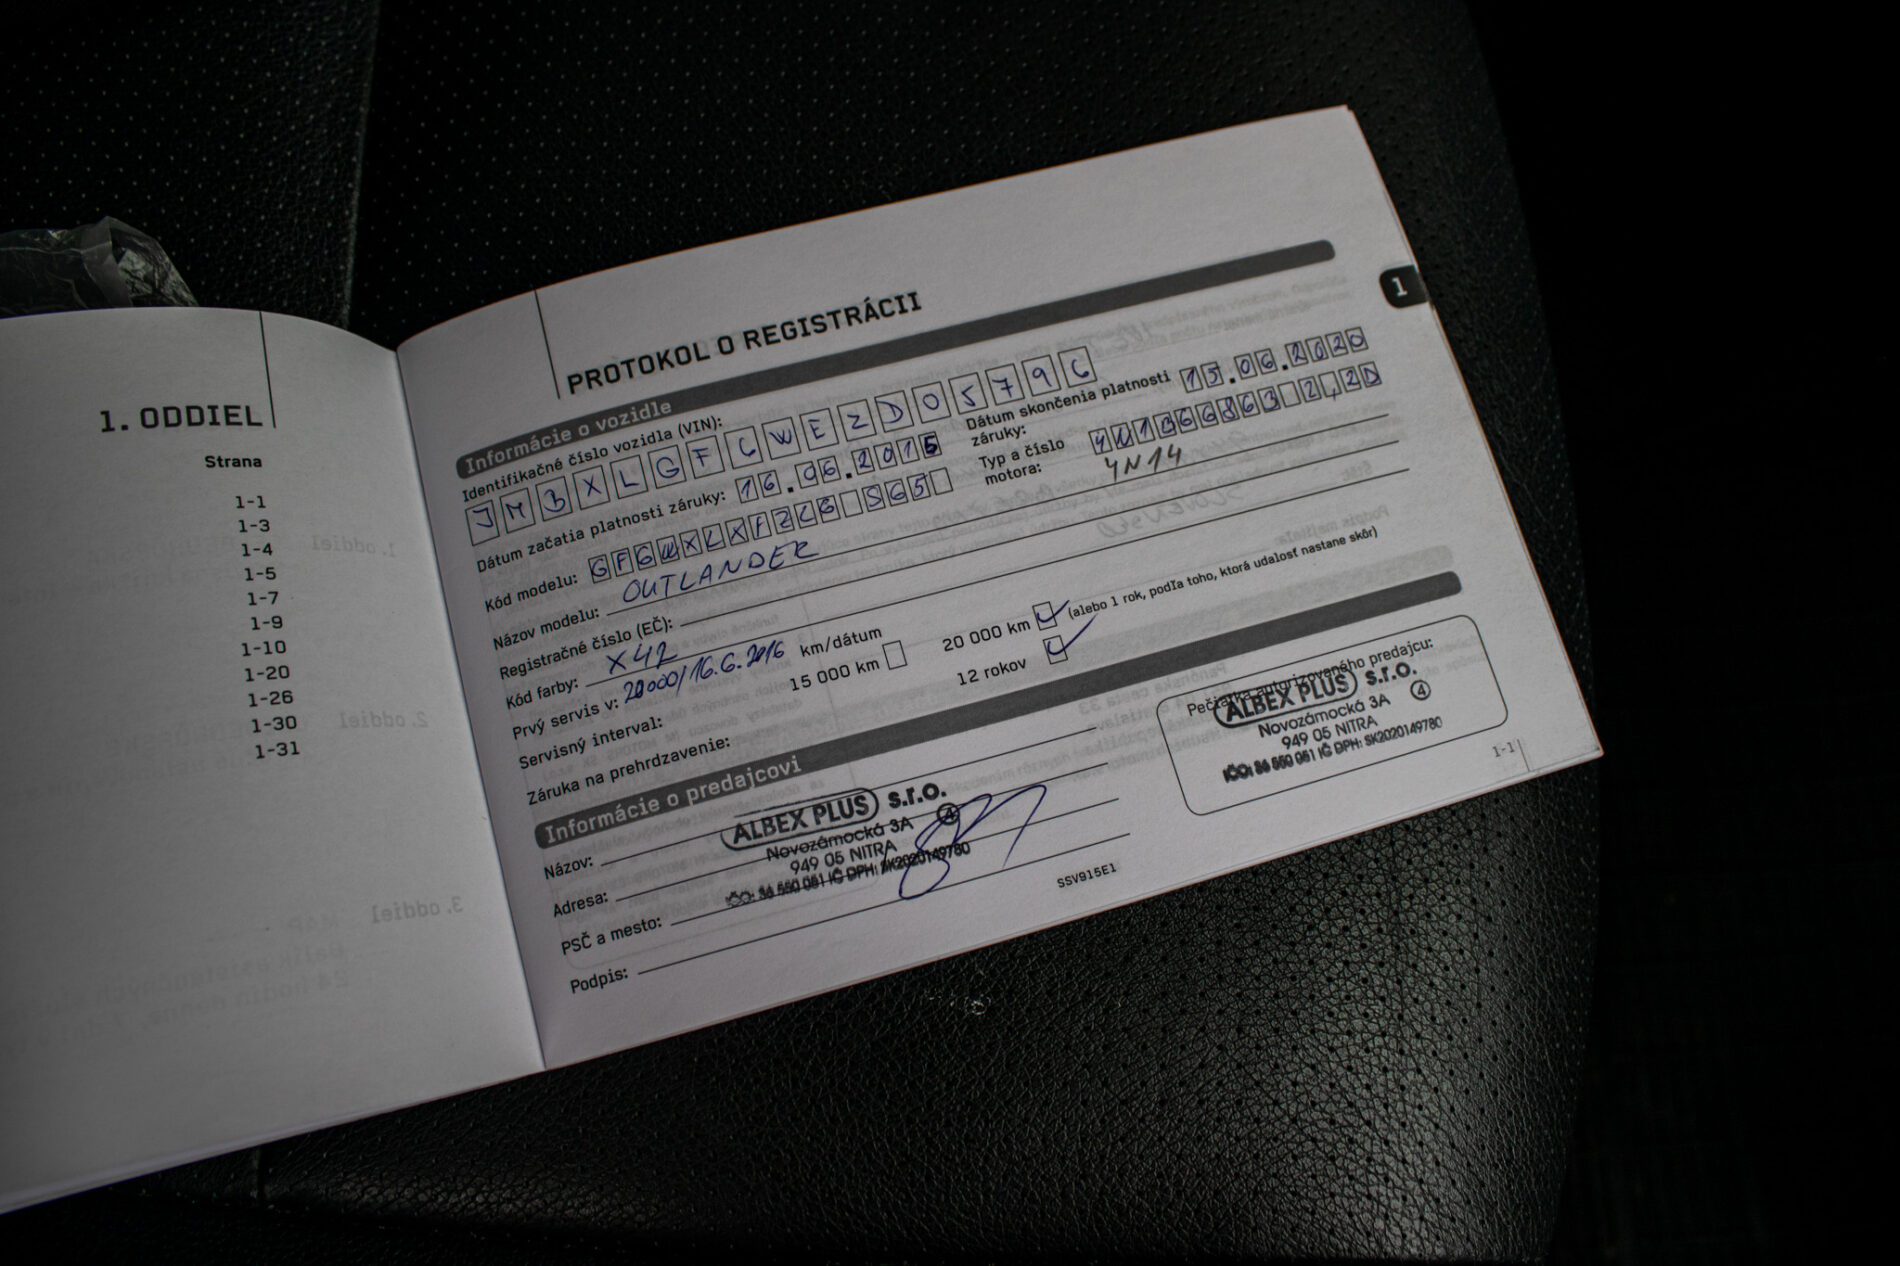 1. ODDIEL
Strana
1-1
1-3
1-4
1-5
1-7
1-9
1-10
1-20
1-26
1-30
1-31
PROTOKOL O REGISTRÁCII
1
Informácie o vozidle
Identifikačné číslo vozidla (VIN):
JMBXLGFCWEZD05796
Dátum začatia platnosti záruky: 16.06.2015
Dátum skončenia platnosti záruky: 15.06.2020
Kód modelu: GFGWXLXFZL6 S65
Typ a číslo motora:
4N14
Názov modelu: OUTLANDER
Registračné číslo (EČ):
Kód farby: X42
Prvý servis v: 20000/16.6.2016 km/dátum
Servisný interval: 15 000 km 20 000 km (alebo 1 rok, podľa toho, ktorá udalosť nastane skôr)
Záruka na prehrdzavenie: 12 rokov
Informácie o predajcovi
Názov:
Adresa:
PSČ a mesto:
Podpis:
ALBEX PLUS s.r.o.
Novozámocká 3A 4
949 05 NITRA
IČO: 36 550 051 IČ DPH: SK2020149780
Pečiatka autorizovaného predajcu:
ALBEX PLUS s.r.o.
Novozámocká 3A 4
949 05 NITRA
IČO: 36 550 051 IČ DPH: SK2020149780
SSV915E1
1-1